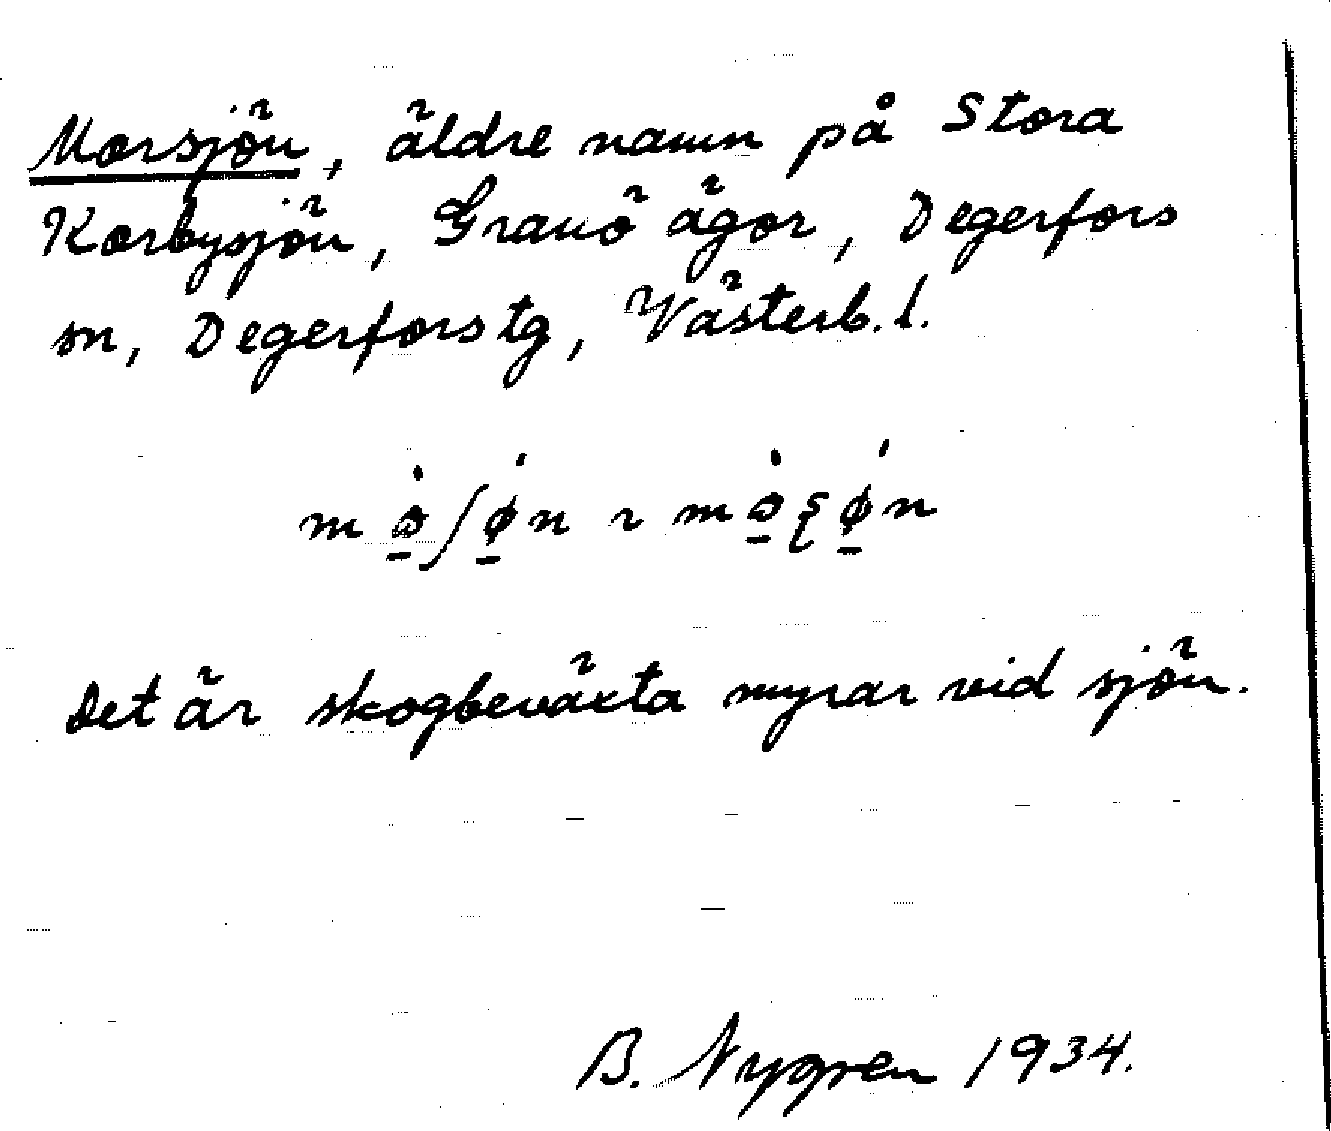 Morsjön, äldre namn på Stora
Korbysjön, Granö ägor, Degerfors
sn, Degerfors tg, Västerb. l.
Det är skogbeväxta myrar vid sjön.
B. Nygren 1934.